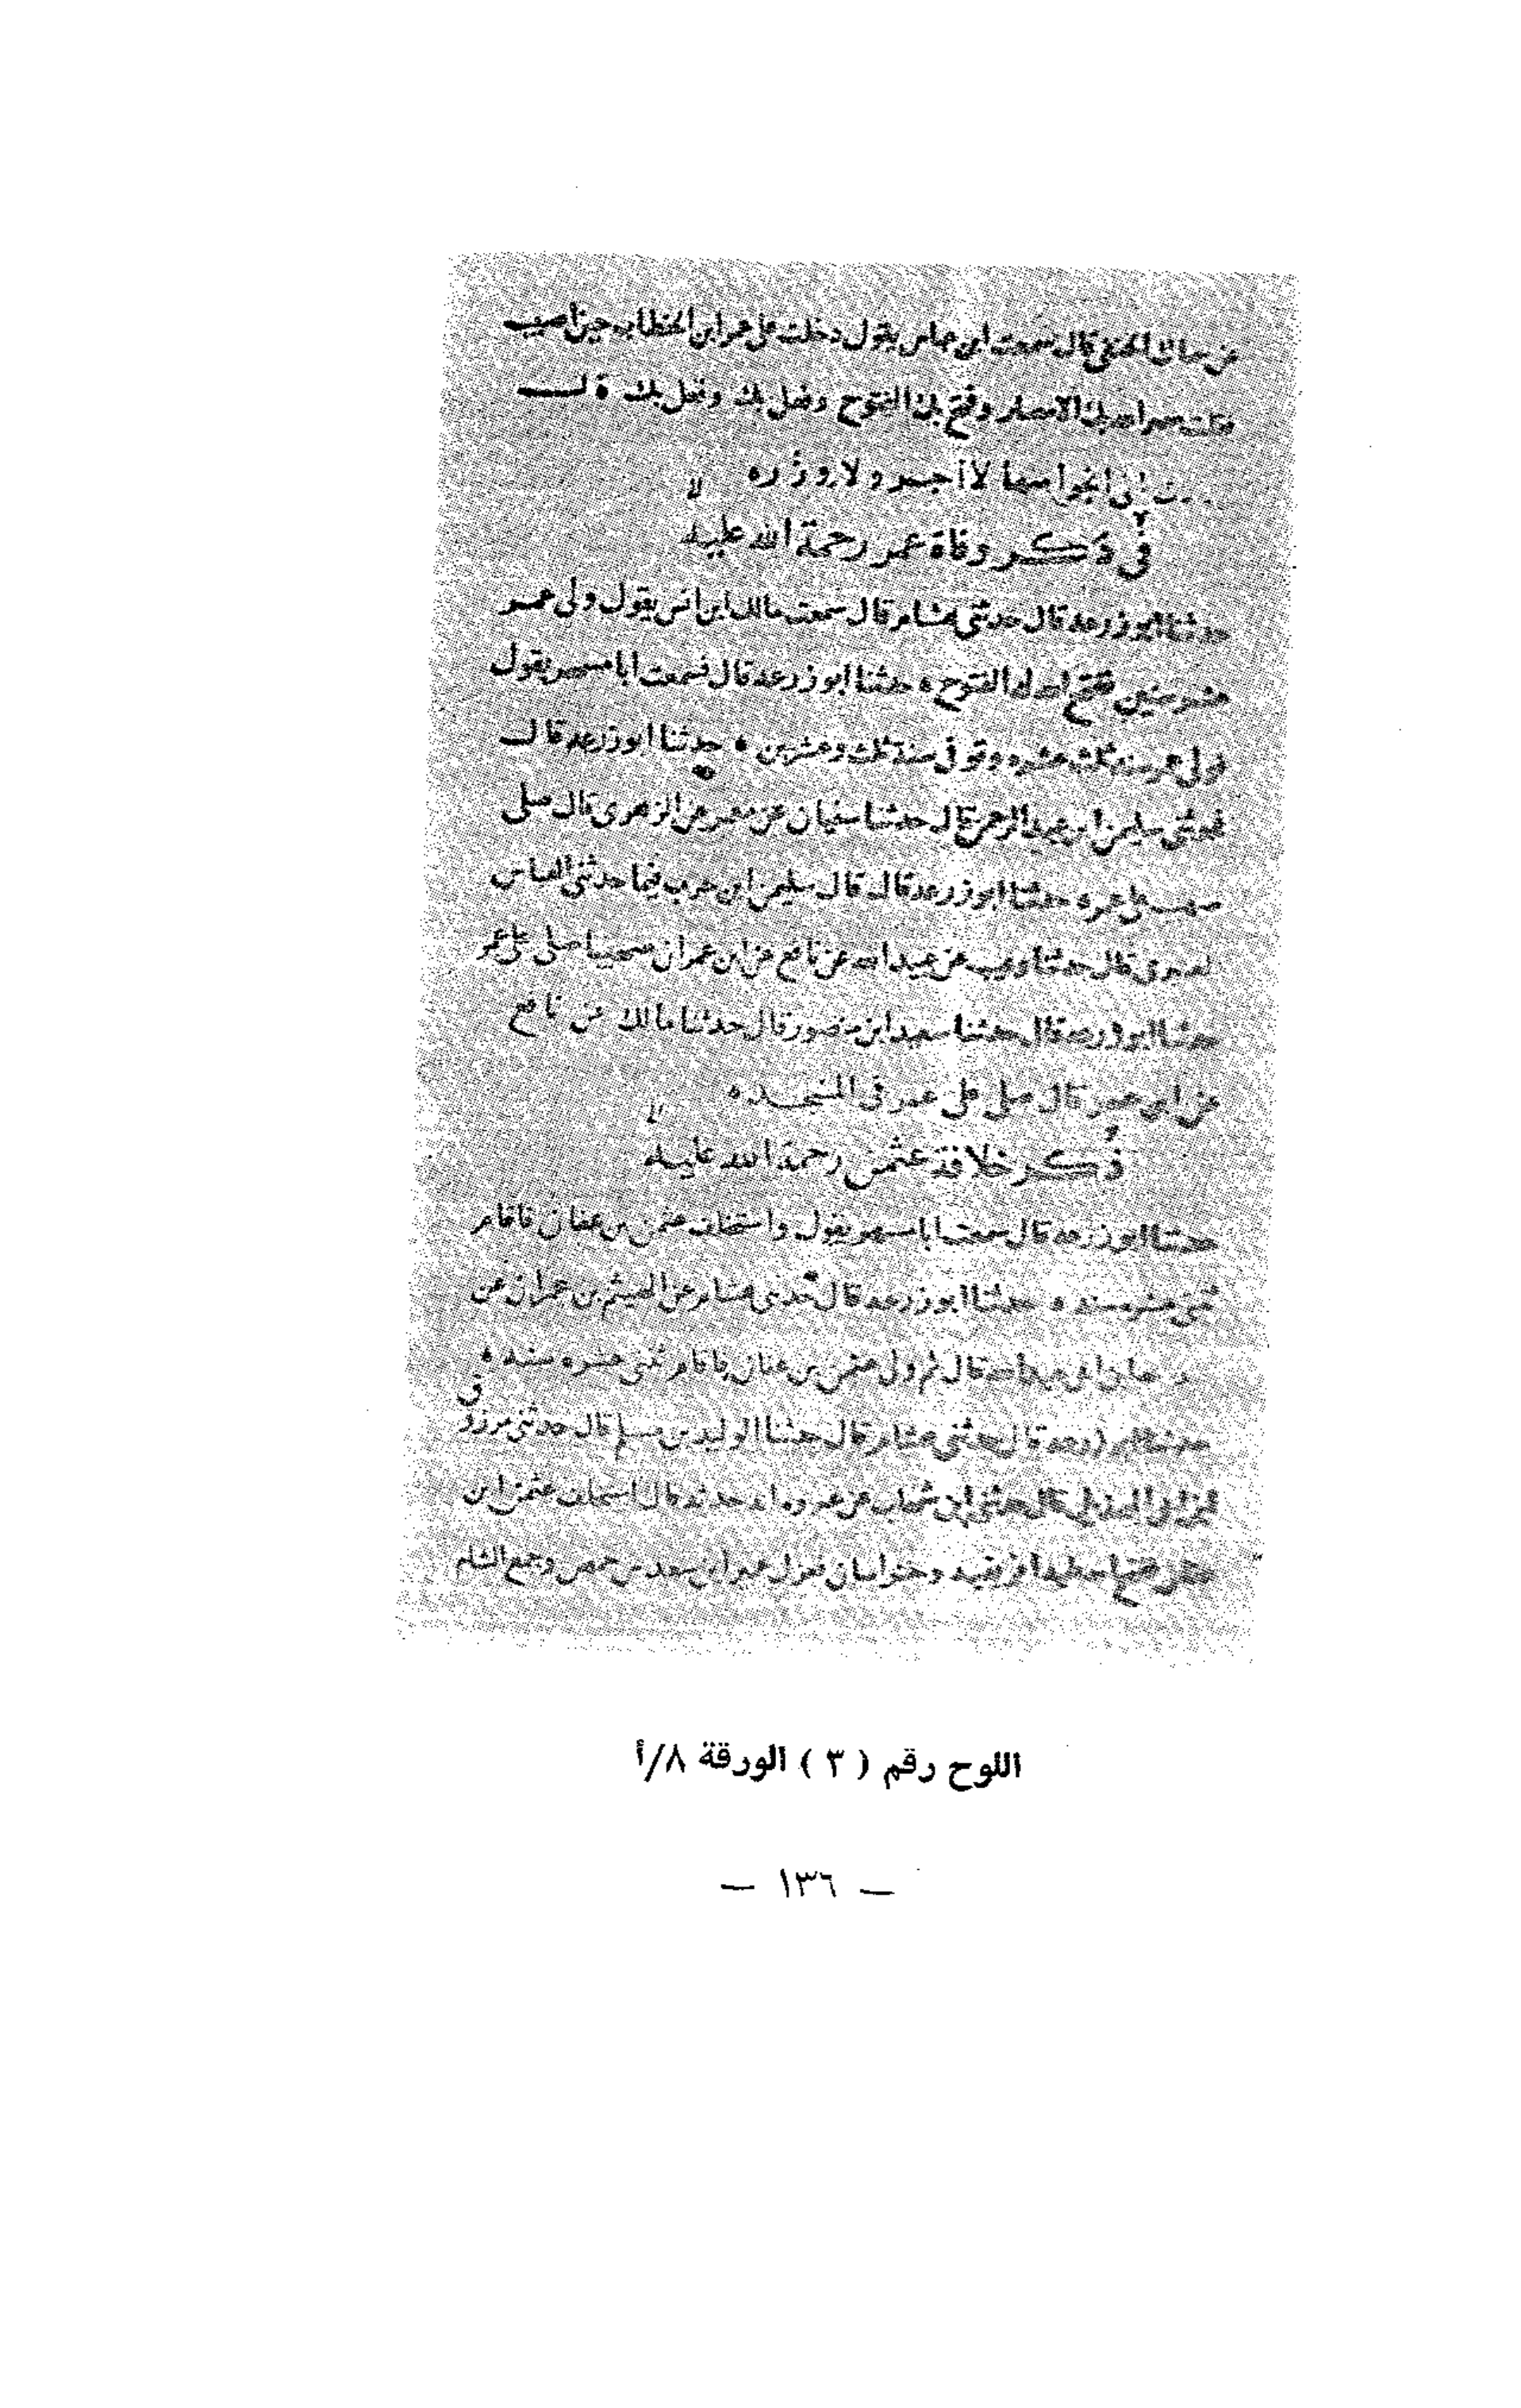 عن سماك الحنفي قال سمعت ابن عباس يقول دخلت على عمر ابن الخطاب حين اصيب
فقلت مصر الله بك الامصار وفتح بك الفتوح وفعل بك وفعل بك قال
اني انجوا منها لا اجر ولا وزره
في ذكر وفاة عمر رحمة الله عليه
حدثنا ابو زرعة قال حدثني هشام قال سمعت مالك ابن انس يقول ولى عمر
عشر سنين ففتح الله له الفتوح ه حدثنا ابو زرعة قال فسمعت ابا مسهر يقول
ولى عمر سنة ثلث عشره وتوفى سنة ثلث وعشرين ه حدثنا ابو زرعة قال
فحدثني سليمن ابن عبد الرحمن قال حدثنا سفيان عن معمر عن الزهري قال صلى
صهيب على عمر ه حدثنا ابو زرعة قال قال سليمن ابن حرب فيما حدثني العباس
العنبري قال حدثنا وهيب عن عبيد الله عن نافع عن ابن عمر ان صهيبا صلى على عمر
حدثنا ابو زرعة قال حدثنا سعيد ابن منصور قال حدثنا مالك عن نافع
عن ابن عمر قال صلى على عمر في المسجد ه
ذكر خلافة عثمن رحمة الله عليه
حدثنا ابو زرعة قال سمعت ابا مسهر يقول واستخلف عثمن بن عفان فاقام
ثنتي عشره سنه ه حدثنا ابو زرعة قال حدثني هشام عن الهيثم بن عمران عن
قال ثم ولى عثمن بن عفان فاقام ثنتي عشره سنه ه
حدثنا ابو زرعة قال حدثني هشام قال حدثنا الوليد بن مسلم قال حدثني مرزوق
ابن ابي الهذيل قال حدثني ابن شهاب عن عروه انه حدثه قال استخلف عثمن ابن
افريقيه وخراسان فعزل عمير ابن سعد من حمص وجمع الشام
اللوح رقم ( ٣ ) الورقة ٨/أ
— ١٣٦ —